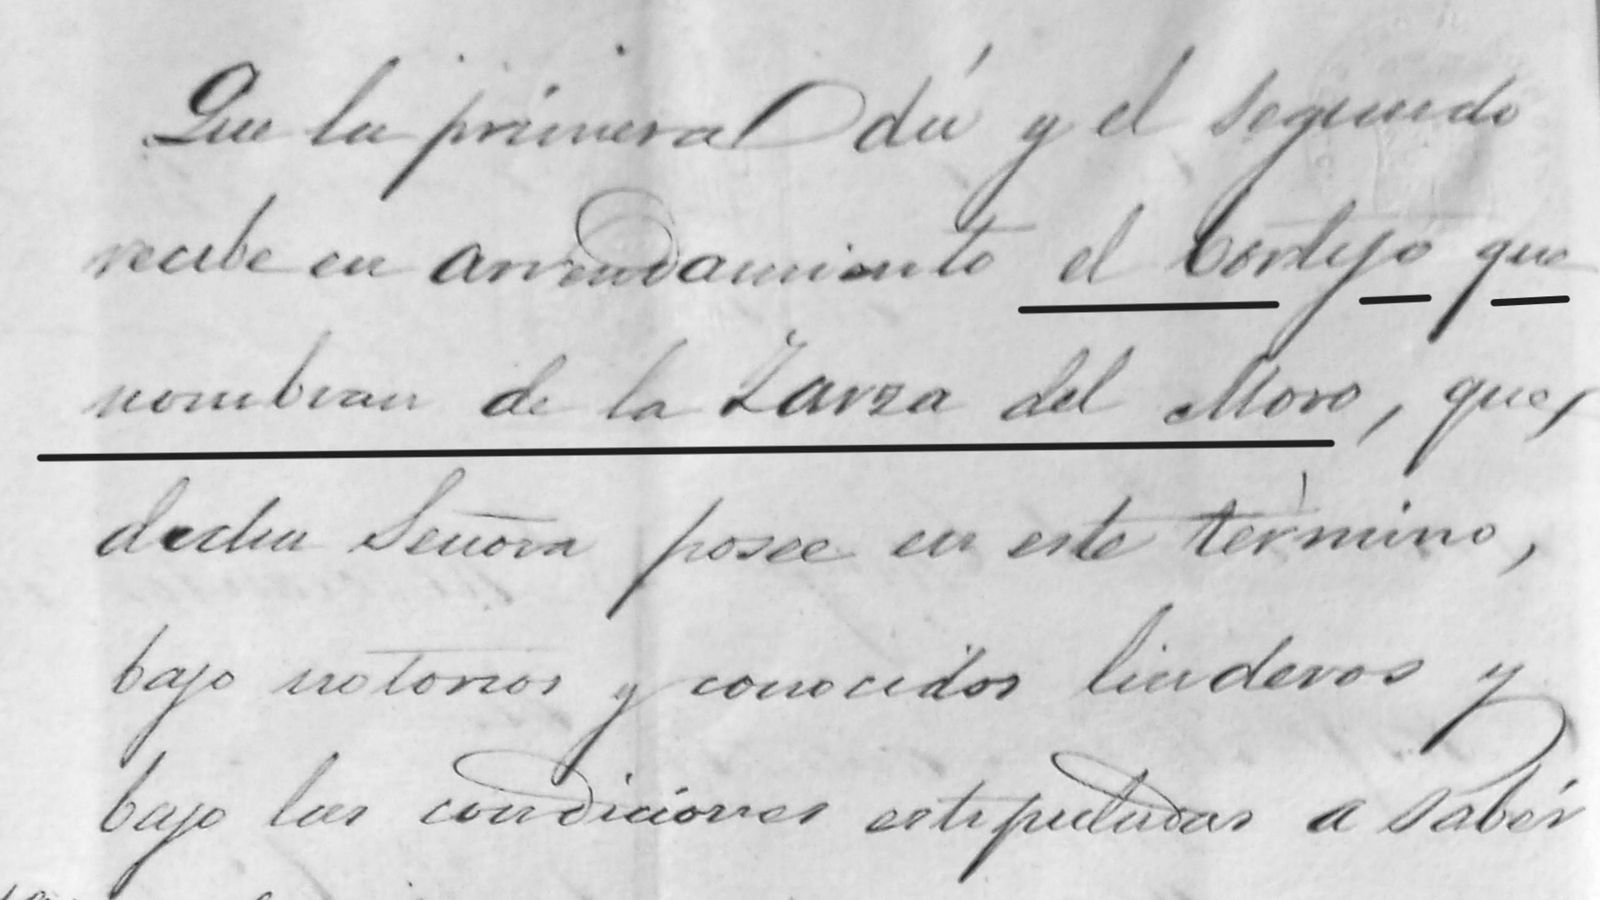 Que la primera dá y el segundo
recibe en arrendamiento el Cortijo que
nombran de la Zarza del Moro, que,
dicha Señora posee en este término,
bajo notorios y conocidos linderos y
bajo las condiciones estipuladas a saber